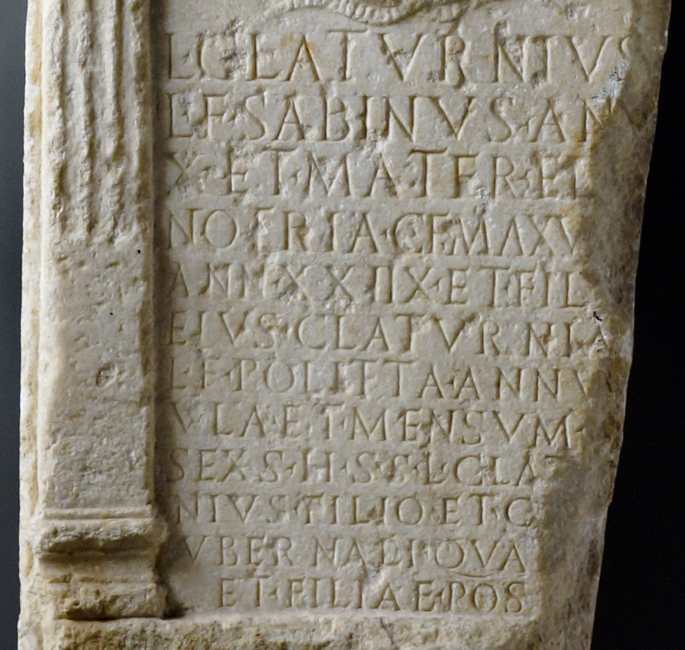 L·CLATVRNIVS
L·F·SABINVS·AN
X·ET·MATER·EI
NOTRIA·C·F·MAXV
ANN·XXIIX·ET·FIL
EIVS·CLATVRNIA
L·F·POLITTA·ANNV
VLA·ET·MENSVM·
SEXS·H·S·S·L·CLA
NIVS·FILIO·ET·C
VBERNALI·QVA
ET·FILIAE·POS